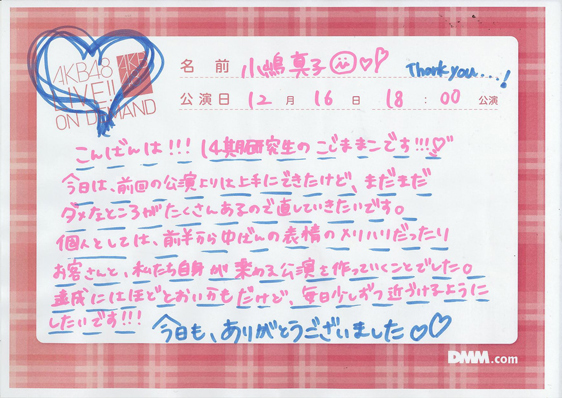 AKB48
LIVE!!
ON DEMAND
AKB
名前 小嶋真子
Thank you...!
公演日 12月16日 18:00 公演
こんばんは!!! 14期研究生の こじまこです!!!♡
今日は、前回の公演よりは上手にできたけど、まだまだ
ダメなところがたくさんあるので直していきたいです。
個人としては、前半から中ばんの表情のメリハリだったり
お客さんと、私たち自身が楽める公演を作っていくことでした。
達成にはほどとおいかもだけど、毎日少しずつ近づけるように
したいです!!!
今日も、ありがとうございました♡♡
DMM.com